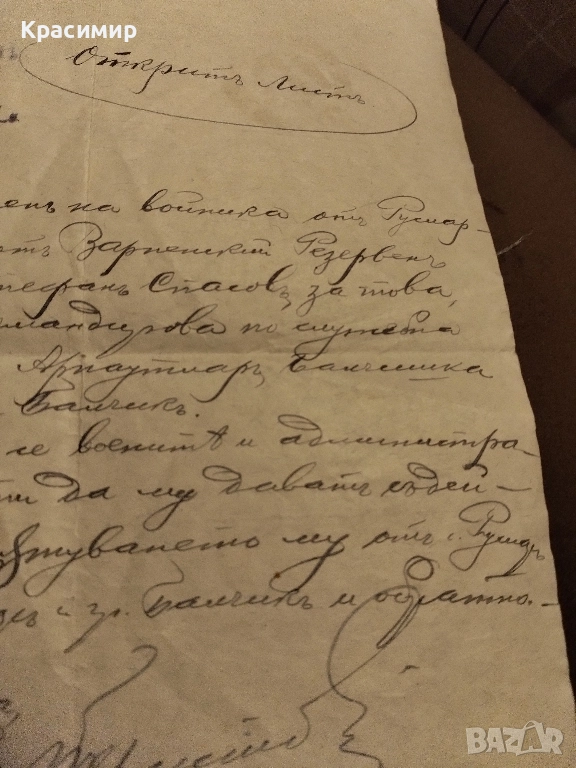 Красимир
Открытъ Листъ
енъ на войника от Русlar-
етъ Варненский Резервенъ
тефанъ Спасовъ, за това,
мандирова по служба
Арнаутларъ, Балчишка
Балчикъ.
се военитѣ и администра-
ти да му даватъ съдей-
ятуването му отъ с.
и гр. Балчикъ и обратно.-
BAZAR